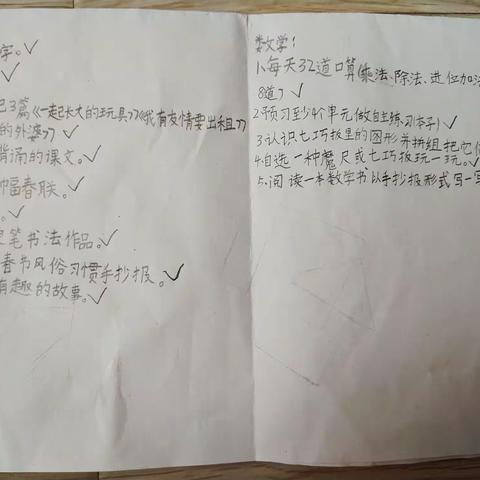 字。✓
✓
记3篇《一起长大的玩具》《我有友情要出租》
的外婆》✓
背诵的课文。✓
幅春联。✓
。✓
笔书法作品。✓
春节风俗习惯手抄报。✓
有趣的故事。✓
数学:
1、每天32道口算(乘法、除法、进位加法
8道)✓
2.预习至少4个单元(做自主练习本子)✓
3.认识七巧板里的图形并拼组把它
4.自选一种魔尺或七巧板玩一玩。✓
5、阅读一本数学书以手抄报形式写一写